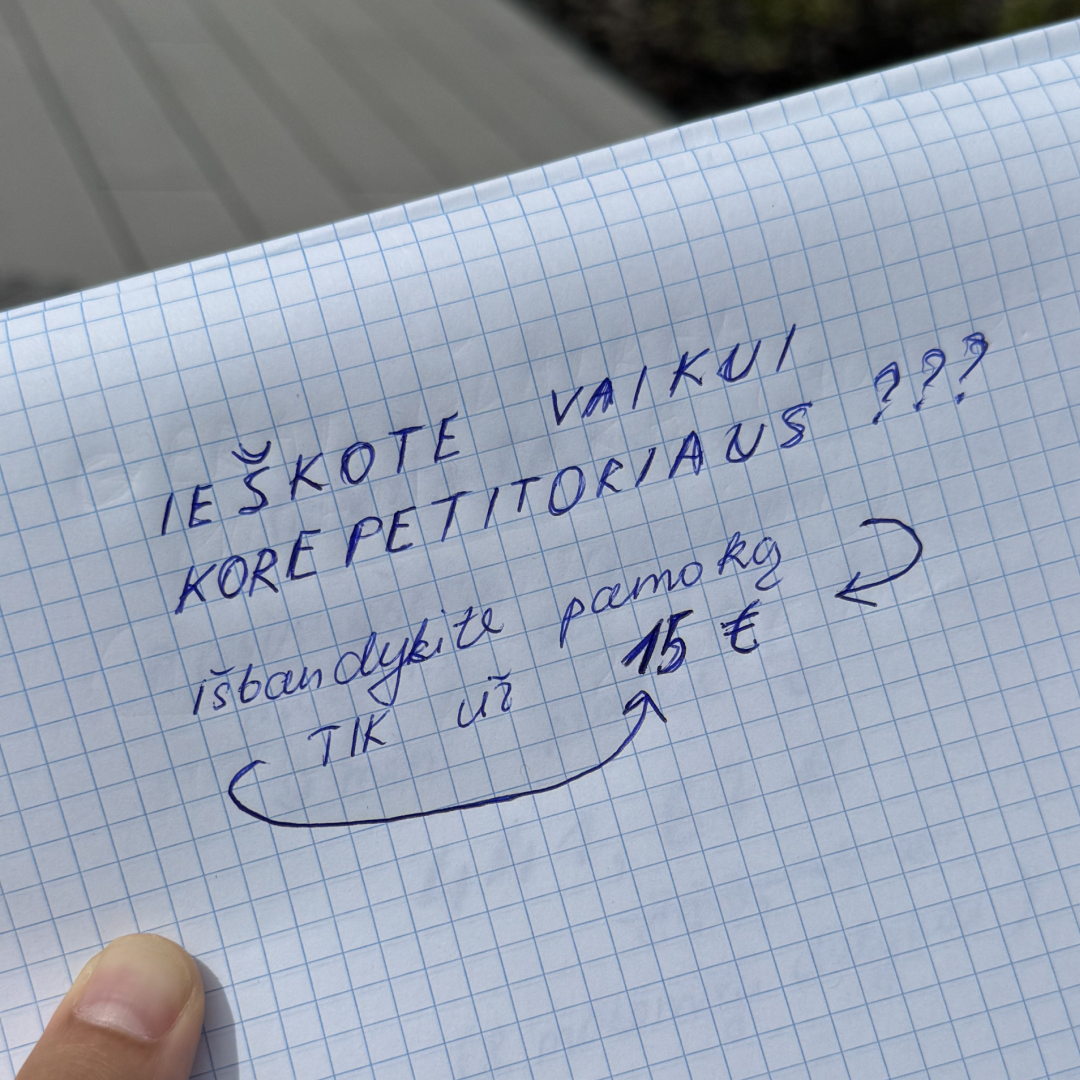 IEŠKOTE VAIKUI
KOREPETITORIAUS ???
išbandykite pamoką
TIK už 15 €